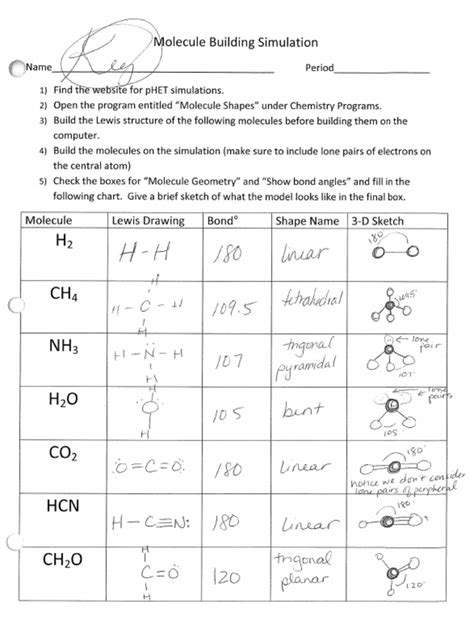 Molecule Building Simulation
Name Key Period
1) Find the website for pHET simulations.
2) Open the program entitled “Molecule Shapes” under Chemistry Programs.
3) Build the Lewis structure of the following molecules before building them on the
computer.
4) Build the molecules on the simulation (make sure to include lone pairs of electrons on
the central atom)
5) Check the boxes for “Molecule Geometry” and “Show bond angles” and fill in the
following chart. Give a brief sketch of what the model looks like in the final box.
Molecule Lewis Drawing Bond° Shape Name 3-D Sketch
H₂ H-H 180 linear 180
CH₄ H-C-H H H 109.5 tetrahedral 109.5
NH₃ H-N-H H 107 trigonal pyramidal lone pair 107
H₂O H O H 105 bent lone pairs 105
CO₂ O=C=O 180 Linear 180
notice we don't consider
lone pairs of peripheral
HCN H-C≡N: 180 Linear 180
CH₂O H C=O H 120 trigonal planar 120